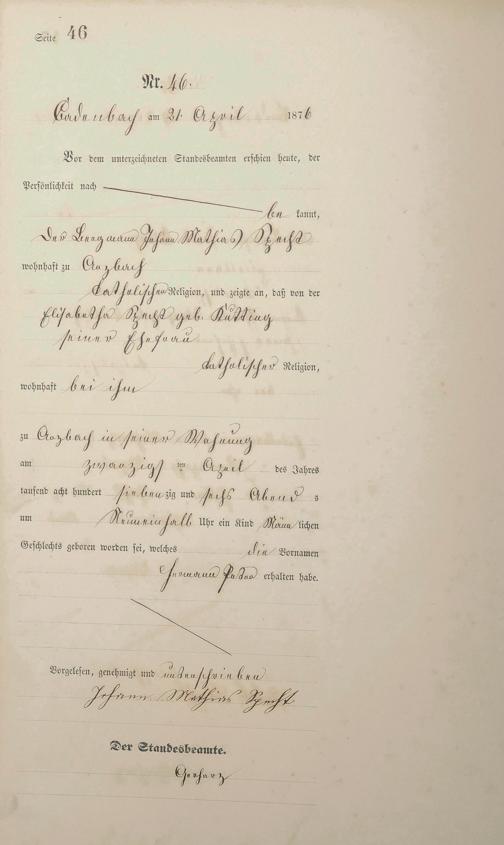 Seite 46
Nr. 46.
Cadenbach am 21 April 1876
Vor dem unterzeichneten Standesbeamten erschien heute, der
Persönlichkeit nach
be kannt,
der Bergmann Johann Mathias Specht
wohnhaft zu Arzbach
katholischer Religion, und zeigte an, daß von der
Elisabetha Specht geb. Kutting
seiner Ehefrau
katholischer Religion,
wohnhaft bei ihm
zu Arzbach in seiner Wohnung
am zwanzigsten April des Jahres
tausend acht hundert siebenzig und sechs Abend s
um Neuneinhalb Uhr ein Kind Männlichen
Geschlechts geboren worden sei, welches die Vornamen
Hermann Peter erhalten habe.
Vorgelesen, genehmigt und unterschrieben
Johann Mathias Specht
Der Standesbeamte.
Gerharz